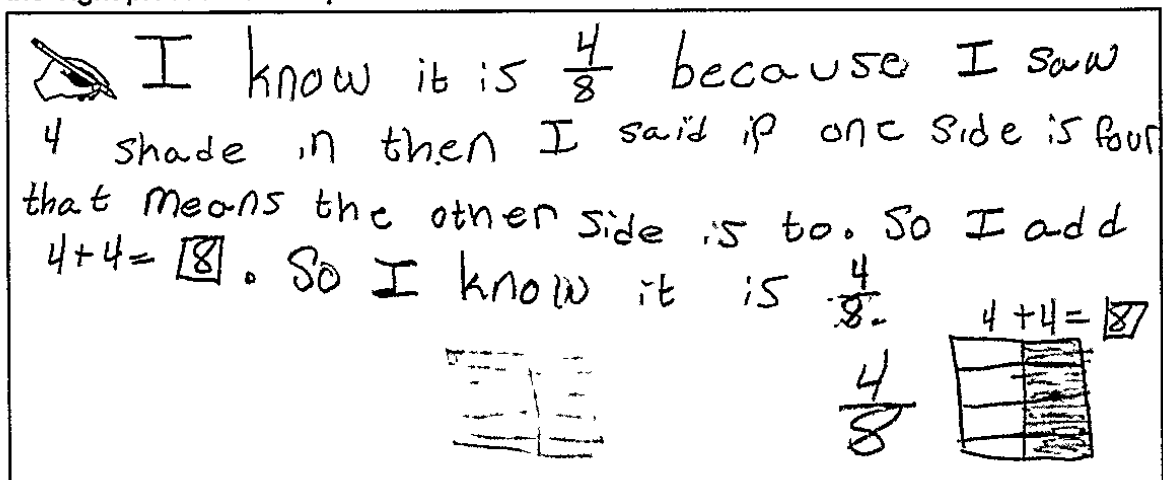 I know it is 4/8 because I saw
4 shade in then I said if one side is four
that means the other side is to. So I add
4+4=8. So I know it is 4/8.
4+4=8
4/8